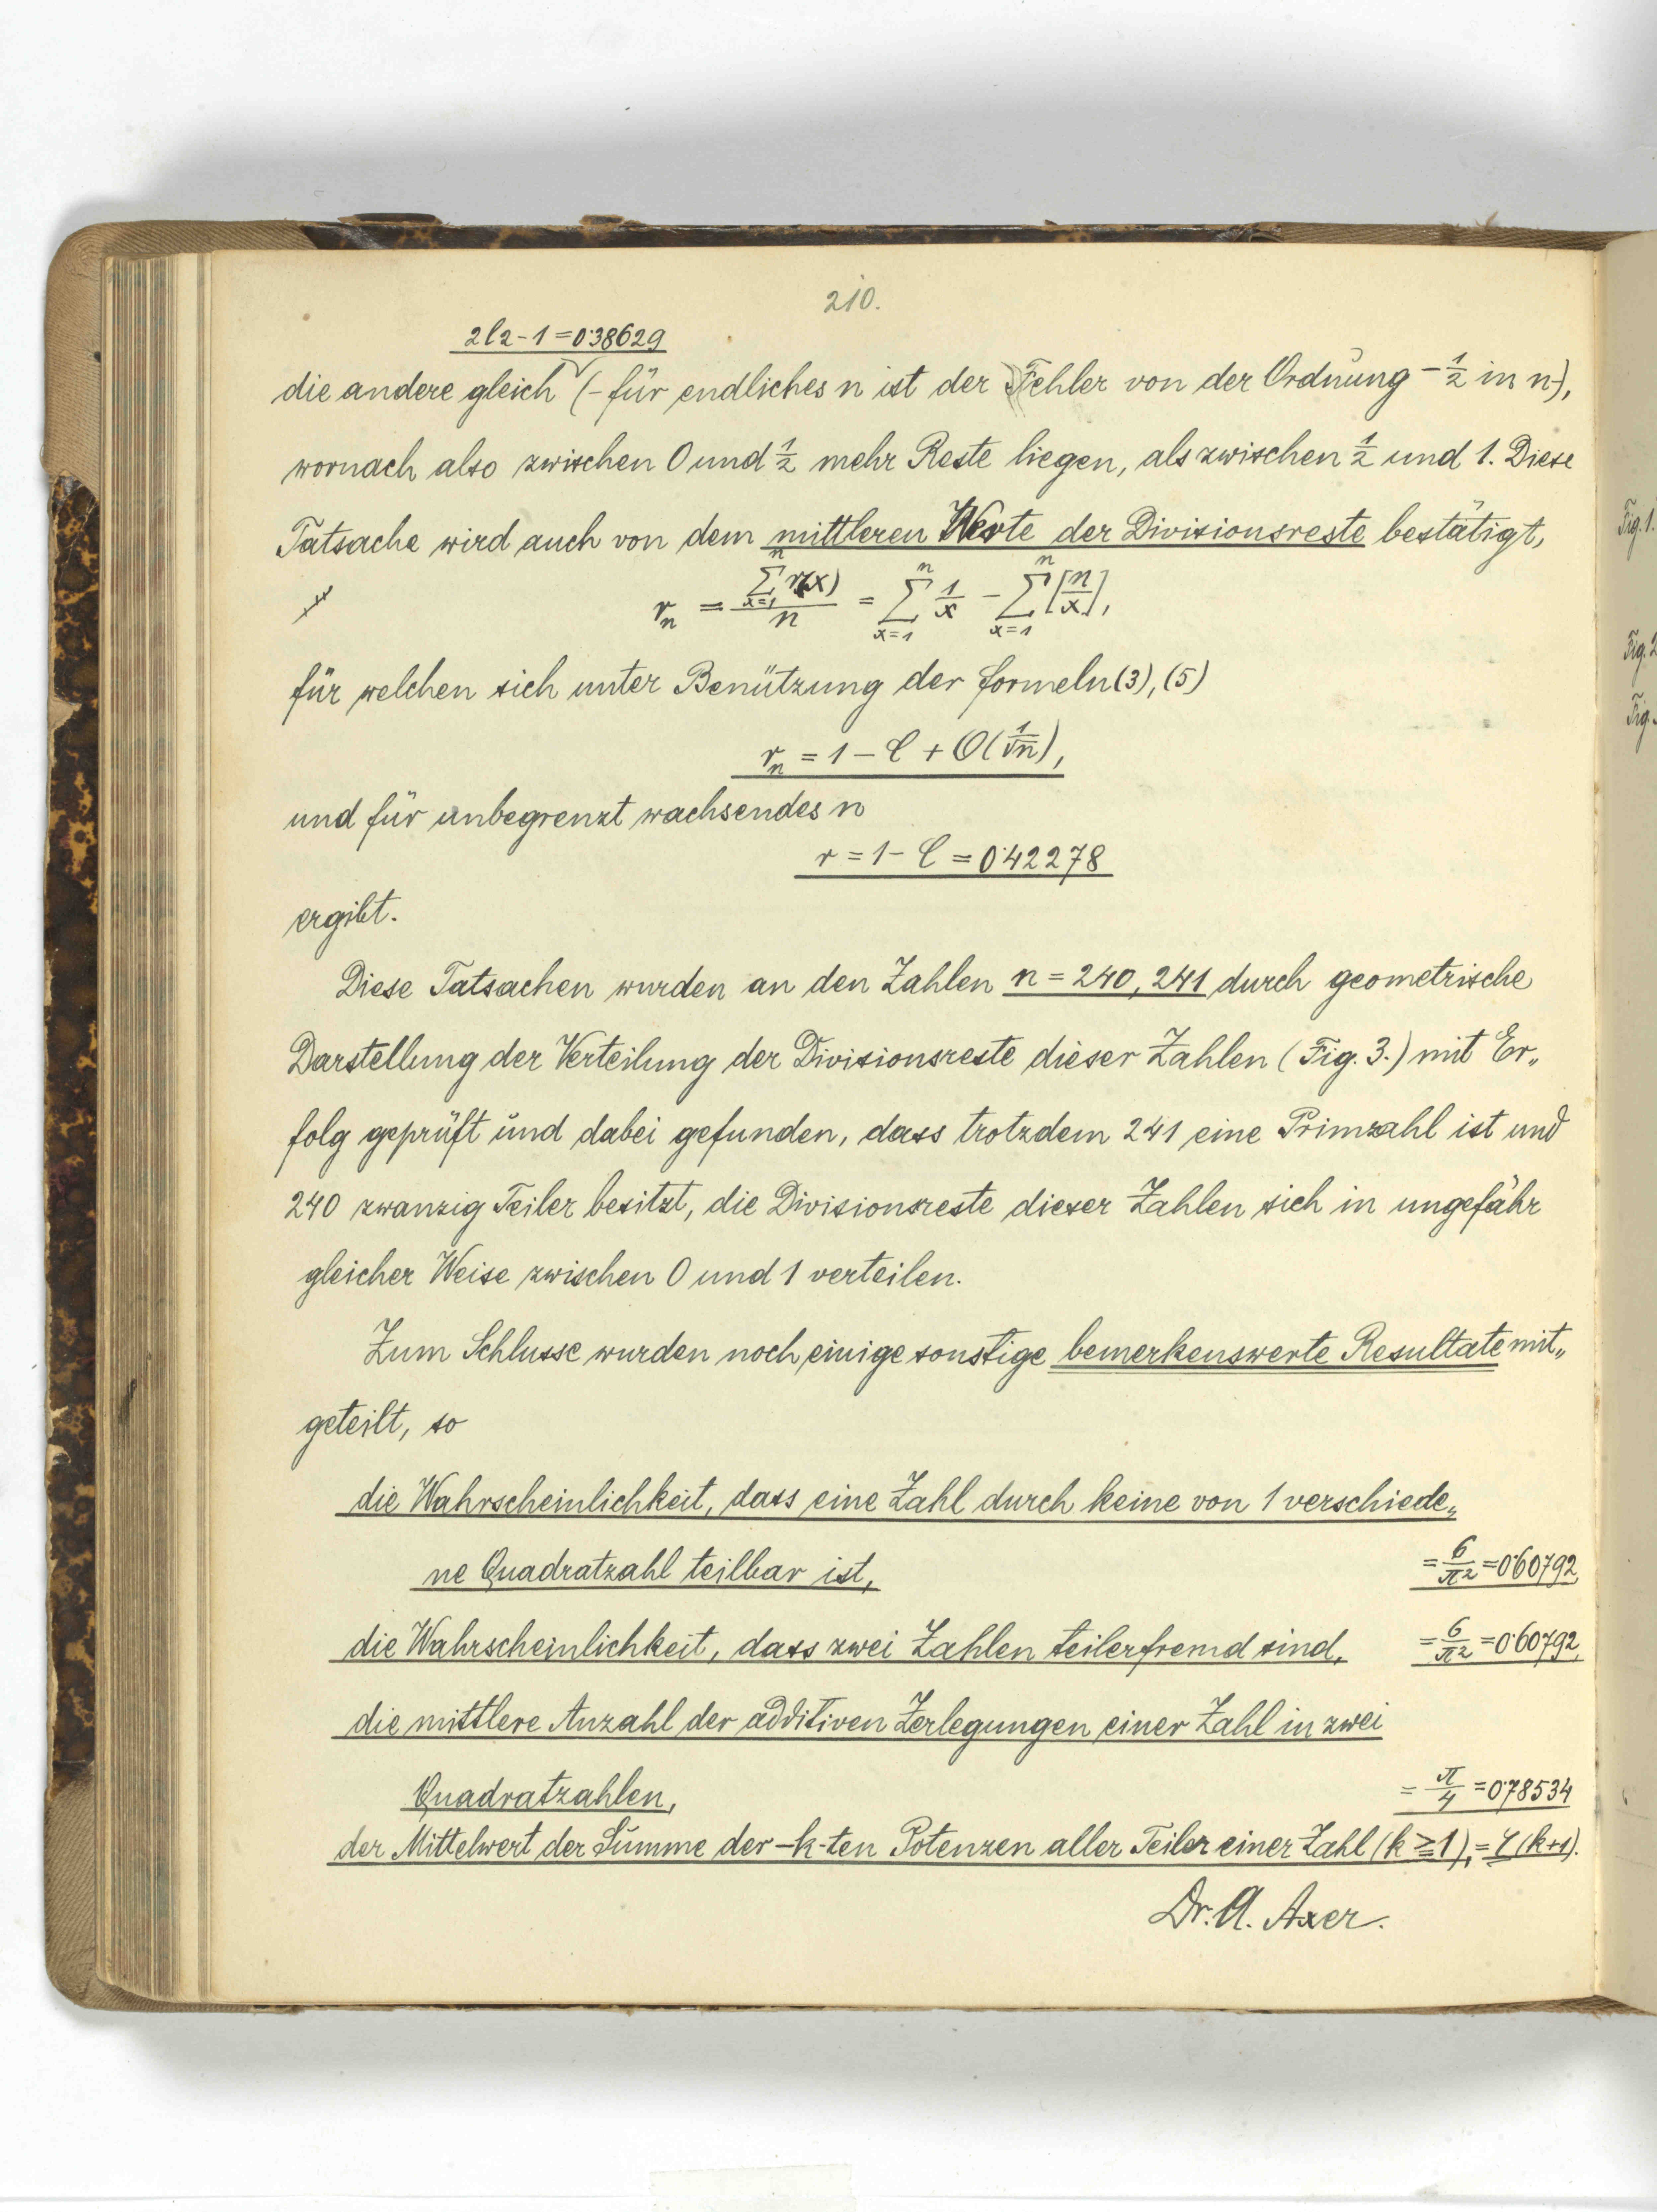 210.
2l2-1=0·38629
die andere gleich (- für endliches n ist der Fehler von der Ordnung -1/2 in n-),
wornach also zwischen 0 und 1/2 mehr Reste liegen, als zwischen 1/2 und 1. Diese
Tatsache wird auch von dem mittleren Werte der Divisionsreste bestätigt,
r_n = \frac{\sum_{x=1}^{n} r(x)}{n} = \sum_{x=1}^{n} \frac{1}{x} - \sum_{x=1}^{n} [\frac{n}{x}],
für welchen sich unter Benützung der Formeln (3), (5)
r_n = 1 - C + O(\frac{1}{\sqrt{n}}),
und für unbegrenzt wachsendes n
r = 1 - C = 0·42278
ergibt.
Diese Tatsachen wurden an den Zahlen n = 240, 241 durch geometrische
Darstellung der Verteilung der Divisionsreste dieser Zahlen (Fig. 3.) mit Er„
folg geprüft und dabei gefunden, dass trotzdem 241 eine Primzahl ist und
240 zwanzig Teiler besitzt, die Divisionsreste dieser Zahlen sich in ungefähr
gleicher Weise zwischen 0 und 1 verteilen.
Zum Schlusse wurden noch einige sonstige bemerkenswerte Resultate mit„
geteilt, so
die Wahrscheinlichkeit, dass eine Zahl durch keine von 1 verschiede„
ne Quadratzahl teilbar ist, = 6/π² = 0·60792,
die Wahrscheinlichkeit, dass zwei Zahlen teilerfremd sind, = 6/π² = 0·60792,
die mittlere Anzahl der additiven Zerlegungen einer Zahl in zwei
Quadratzahlen, = π/4 = 0·78534
der Mittelwert der Summe der -k-ten Potenzen aller Teiler einer Zahl (k ≧ 1), = ζ(k+1).
Dr. A. Axer.
Fig. 1.
Fig. 2
Fig.